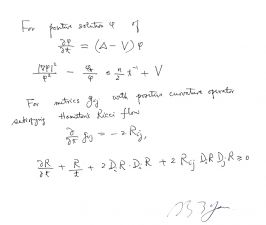 For positive solution φ of
∂φ/∂t = (Δ - V) φ
|∇φ|²/φ² - φₜ/φ ≤ n/2 t⁻¹ + V
For metrics gᵢⱼ with positive curvature operator
satisfying Hamilton's Ricci flow
∂/∂t gᵢⱼ = -2 Rᵢⱼ,
∂R/∂t + R/t + 2 DᵢR · DᵢR + 2 Rᵢⱼ DᵢR DⱼR ≥ 0